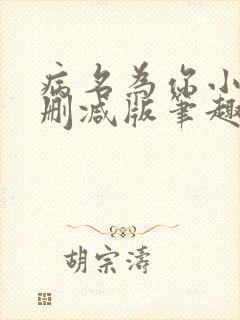 病名为你小
删减版笔趣
胡宗涛